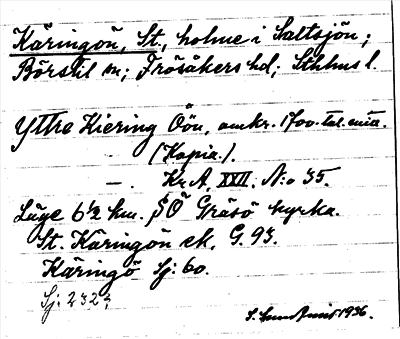 Käringön, St., holme i Saltsjön;
Börstil sn; Frösåkers hd; Sthlms l.
Yttre Kiering Öön, omkr. 1700-tal.
(Kopia.).
— . Kr.A. XXII. N:o 35.
Läge 6½ km. SÖ Gräsö kyrka.
St. Käringön ek. G. 93.
Käringö Sj: 60.
Sj: 232;
1936.